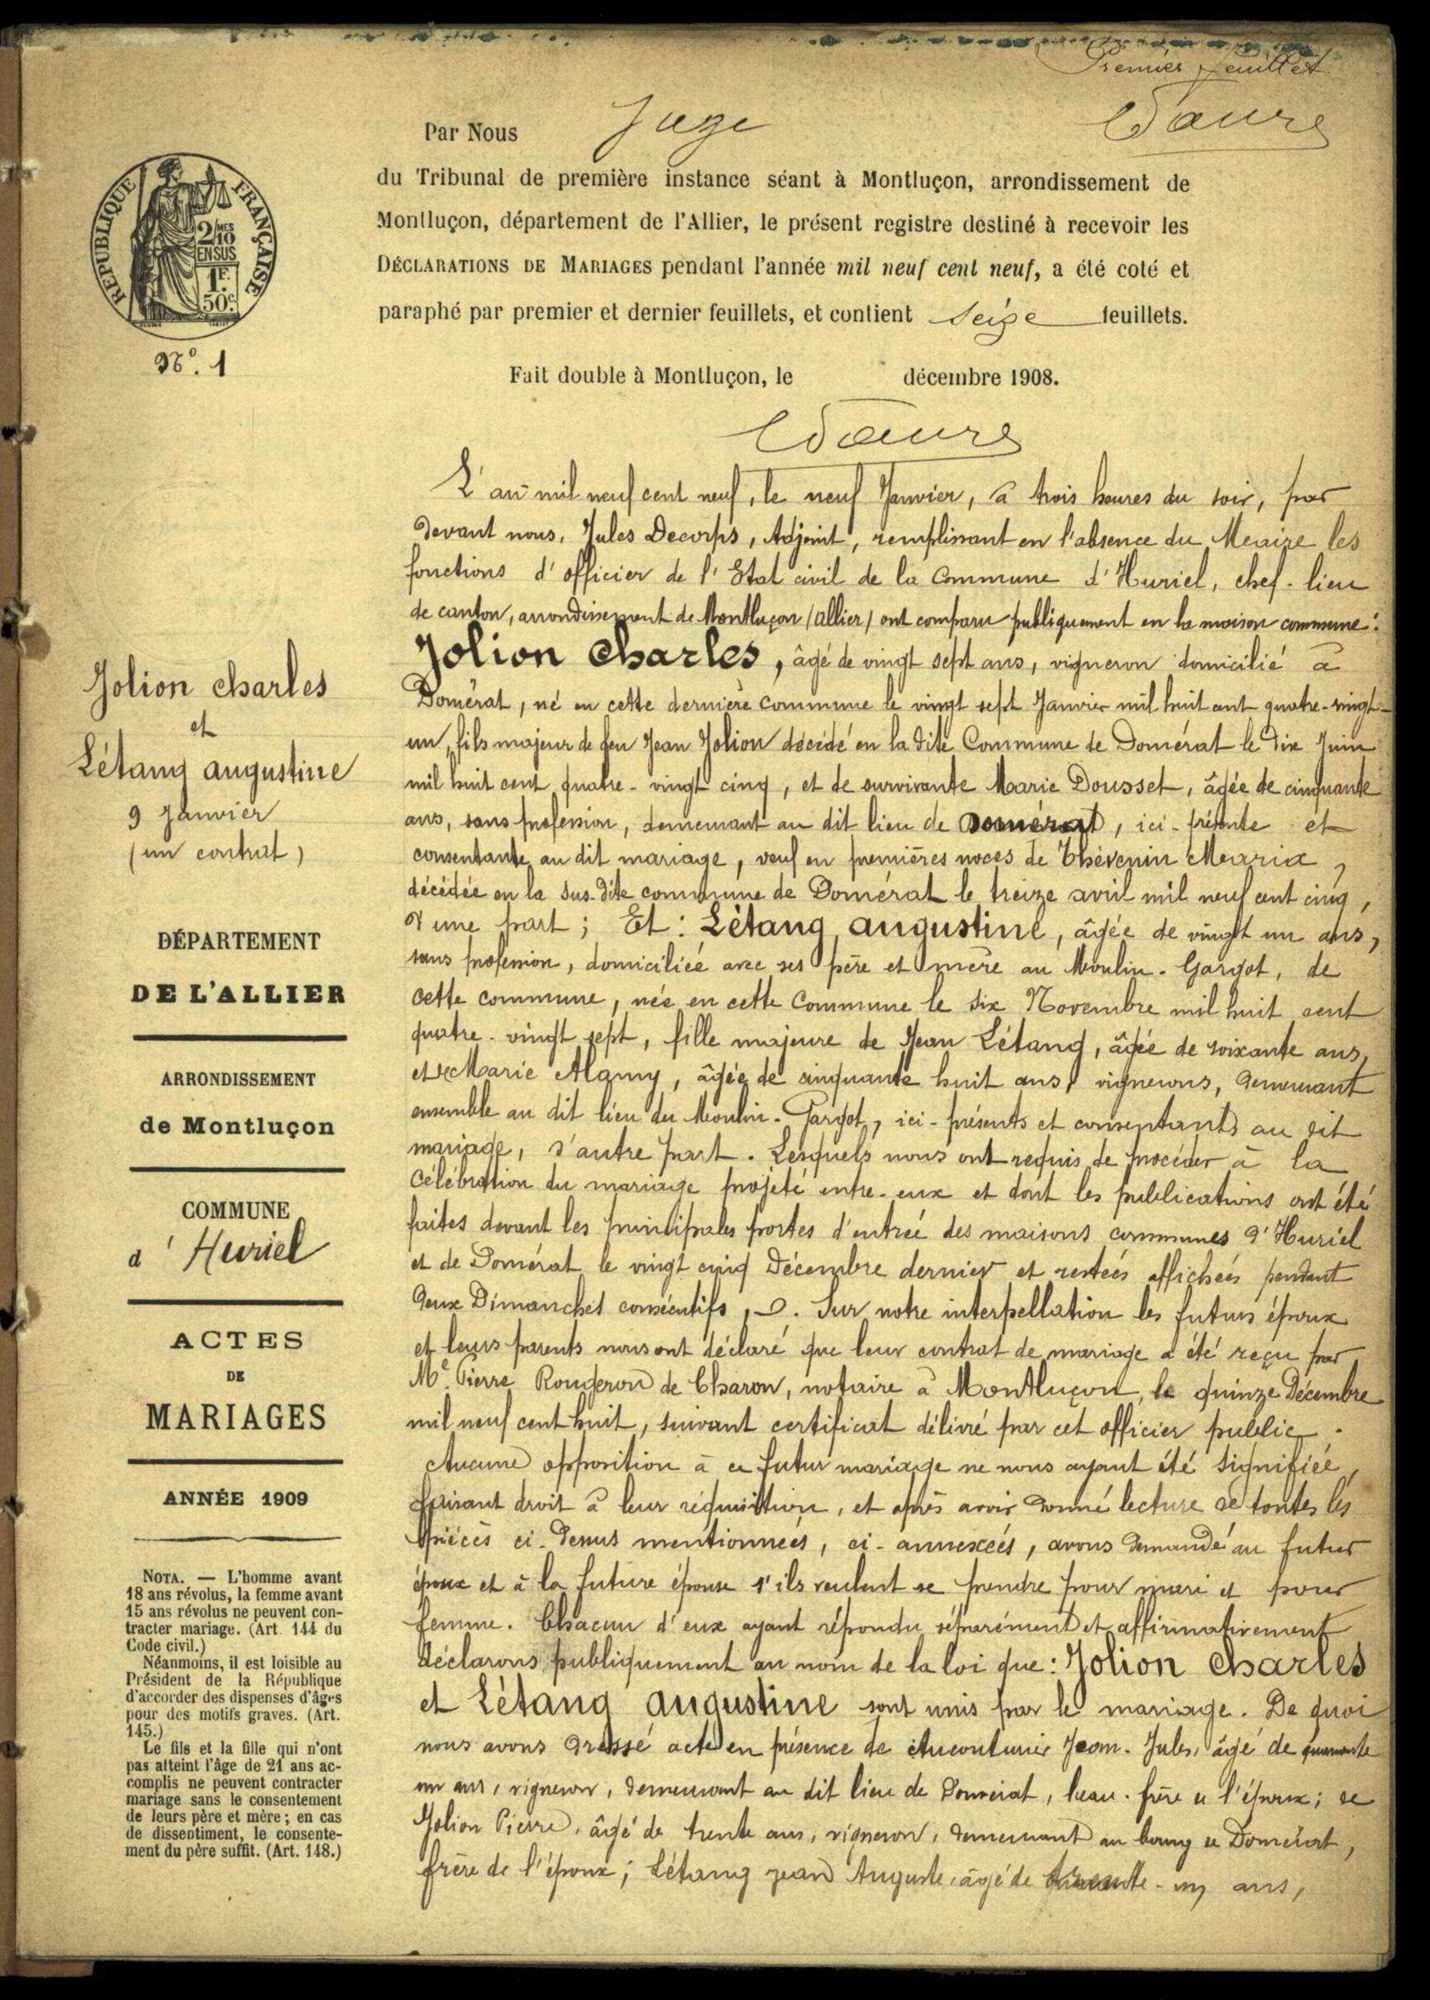 Premier feuillet
Par Nous Juge
du Tribunal de première instance séant à Montluçon, arrondissement de
Montluçon, département de l'Allier, le présent registre destiné à recevoir les
DÉCLARATIONS DE MARIAGES pendant l'année mil neuf cent neuf, a été coté et
paraphé par premier et dernier feuillets, et contient seize feuillets.
Fait double à Montluçon, le décembre 1908.
RÉPUBLIQUE FRANÇAISE
2/10 MES
EN SUS
1 F.
50 c.
N° 1
Jolion Charles
et
Létang Augustine
9 Janvier
(un contrat)
DÉPARTEMENT
DE L'ALLIER
ARRONDISSEMENT
de Montluçon
COMMUNE
d'Huriel
ACTES
DE
MARIAGES
ANNÉE 1909
NOTA. — L'homme avant
18 ans révolus, la femme avant
15 ans révolus ne peuvent con-
tracter mariage. (Art. 144 du
Code civil.)
Néanmoins, il est loisible au
Président de la République
d'accorder des dispenses d'âges
pour des motifs graves. (Art.
145.)
Le fils et la fille qui n'ont
pas atteint l'âge de 21 ans ac-
complis ne peuvent contracter
mariage sans le consentement
de leurs père et mère; en cas
de dissentiment, le consente-
ment du père suffit. (Art. 148.)
L'an mil neuf cent neuf, le neuf Janvier, à trois heures du soir, par
devant nous, Jules Decorps, Adjoint, remplissant en l'absence du Maire les
fonctions d'officier de l'Etat civil de la Commune d'Huriel, chef-lieu
de canton, arrondissement de Montluçon (Allier) ont comparu publiquement en la maison commune:
Jolion Charles, âgé de vingt sept ans, vigneron domicilié à
Domérat, né en cette dernière commune le vingt sept Janvier mil huit cent quatre-vingt-
un, fils majeur de feu Jean Jolion décédé en la dite Commune de Domérat le dix Juin
mil huit cent quatre-vingt cinq, et de survivante Marie Dousset, âgée de cinquante
ans, sans profession, demeurant au dit lieu de Domérat, ici-présente et
consentante au dit mariage, veuf en premières noces de Thévenin Maria,
décédée en la sus-dite commune de Domérat le treize avril mil neuf cent cinq,
d'une part; Et: Létang Augustine, âgée de vingt un ans,
sans profession, domiciliée avec ses père et mère au Moulin-Gargot, de
cette commune, née en cette Commune le six Novembre mil huit cent
quatre-vingt sept, fille majeure de Jean Létang, âgée de soixante ans,
et de Marie Alamy, âgée de cinquante huit ans, vignerons, demeurant
ensemble au dit lieu du Moulin-Gargot, ici-présents et consentants au dit
mariage, d'autre part. Lesquels nous ont requis de procéder à la
célébration du mariage projeté entre-eux et dont les publications ont été
faites devant les principales portes d'entrée des maisons communes d'Huriel
et de Domérat le vingt cinq Décembre dernier et restées affichées pendant
deux Dimanches consécutifs. Sur notre interpellation les futurs époux
et leurs parents nous ont déclaré que leur contrat de mariage a été reçu par
Me. Pierre Rougeron de Charon, notaire à Montluçon, le quinze Décembre
mil neuf cent huit, suivant certificat délivré par cet officier public.
Aucune opposition à ce futur mariage ne nous ayant été signifiée,
faisant droit à leur réquisition, et après avoir donné lecture de toutes les
pièces ci-dessus mentionnées, ci-annexées, avons demandé au futur
époux et à la future épouse s'ils veulent se prendre pour mari et pour
femme. Chacun d'eux ayant répondu séparément et affirmativement
déclarons publiquement au nom de la loi que: Jolion Charles
et Létang Augustine sont unis par le mariage. De quoi
nous avons dressé acte en présence de Aucouturier Jean-Jules, âgé de quarante
un ans, vigneron, demeurant au dit lieu de Domérat, beau-frère de l'époux; de
Jolion Pierre, âgé de trente ans, vigneron, demeurant au bourg de Domérat,
frère de l'époux; Létang Jean Auguste, âgé de trente-un ans,